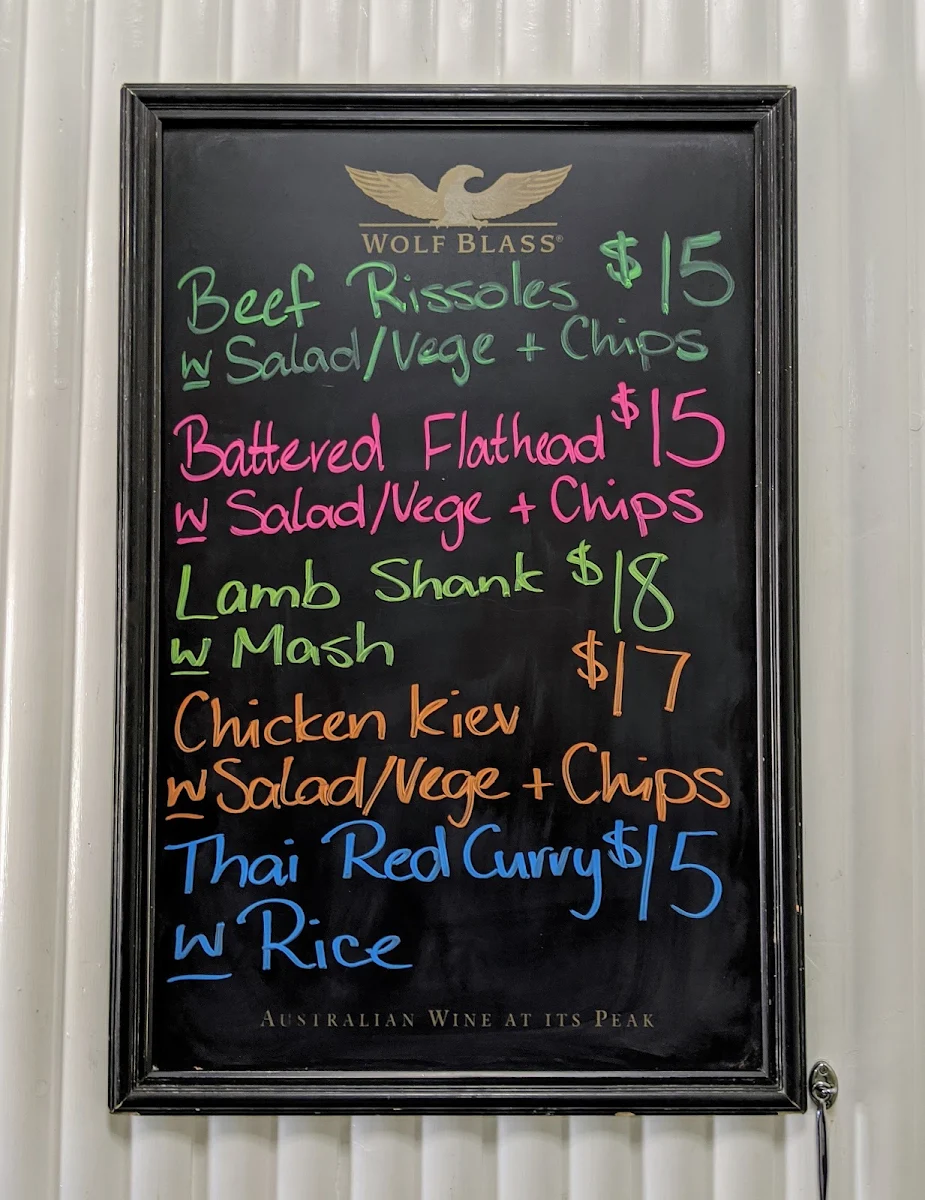 WOLF BLASS®
Beef Rissoles $15
w Salad/Vege + Chips
Battered Flathead $15
w Salad/Vege + Chips
Lamb Shank $18
w Mash
$17
Chicken Kiev
w Salad/Vege + Chips
Thai Red Curry $15
w Rice
AUSTRALIAN WINE AT ITS PEAK